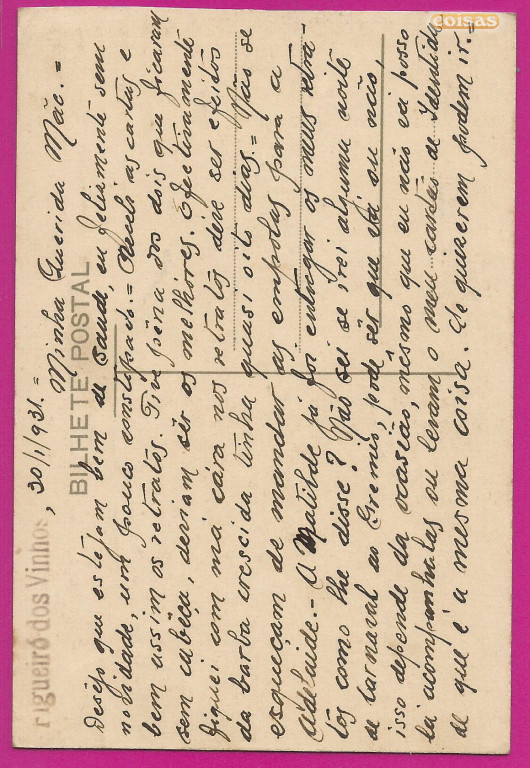 coisas
rigueiró dos Vinhos, 30/1/931.=
BILHETE POSTAL
Minha Querida Mãe.=
Desejo que estejam bem de saude, eu felismente sem
novidade, um pouco constipado.= Recebi as cartas e
bem assim os retratos. Tive pêna dos dois que ficaram
sem cabêça, deviam sêr os melhores. Efectivamente
fiquei com má cára nos retratos deve ser efeitos
da barba crescida tinha quasi oito dias.= Não se
esqueçam de mandar as empolas para a
Adelaide.- A Matilde já foi entregar os meus retra-
tos como lhe disse? Não sei se irei alguma noite
de Carnaval ao Gremio, pode sêr que sim ou não,
isso depende da ocasião, mêsmo que eu não vá posso
lá acompanhalas ou levam o meu cartão de Identidade
de que é a mesma coisa. Se quizerem podem ir.=